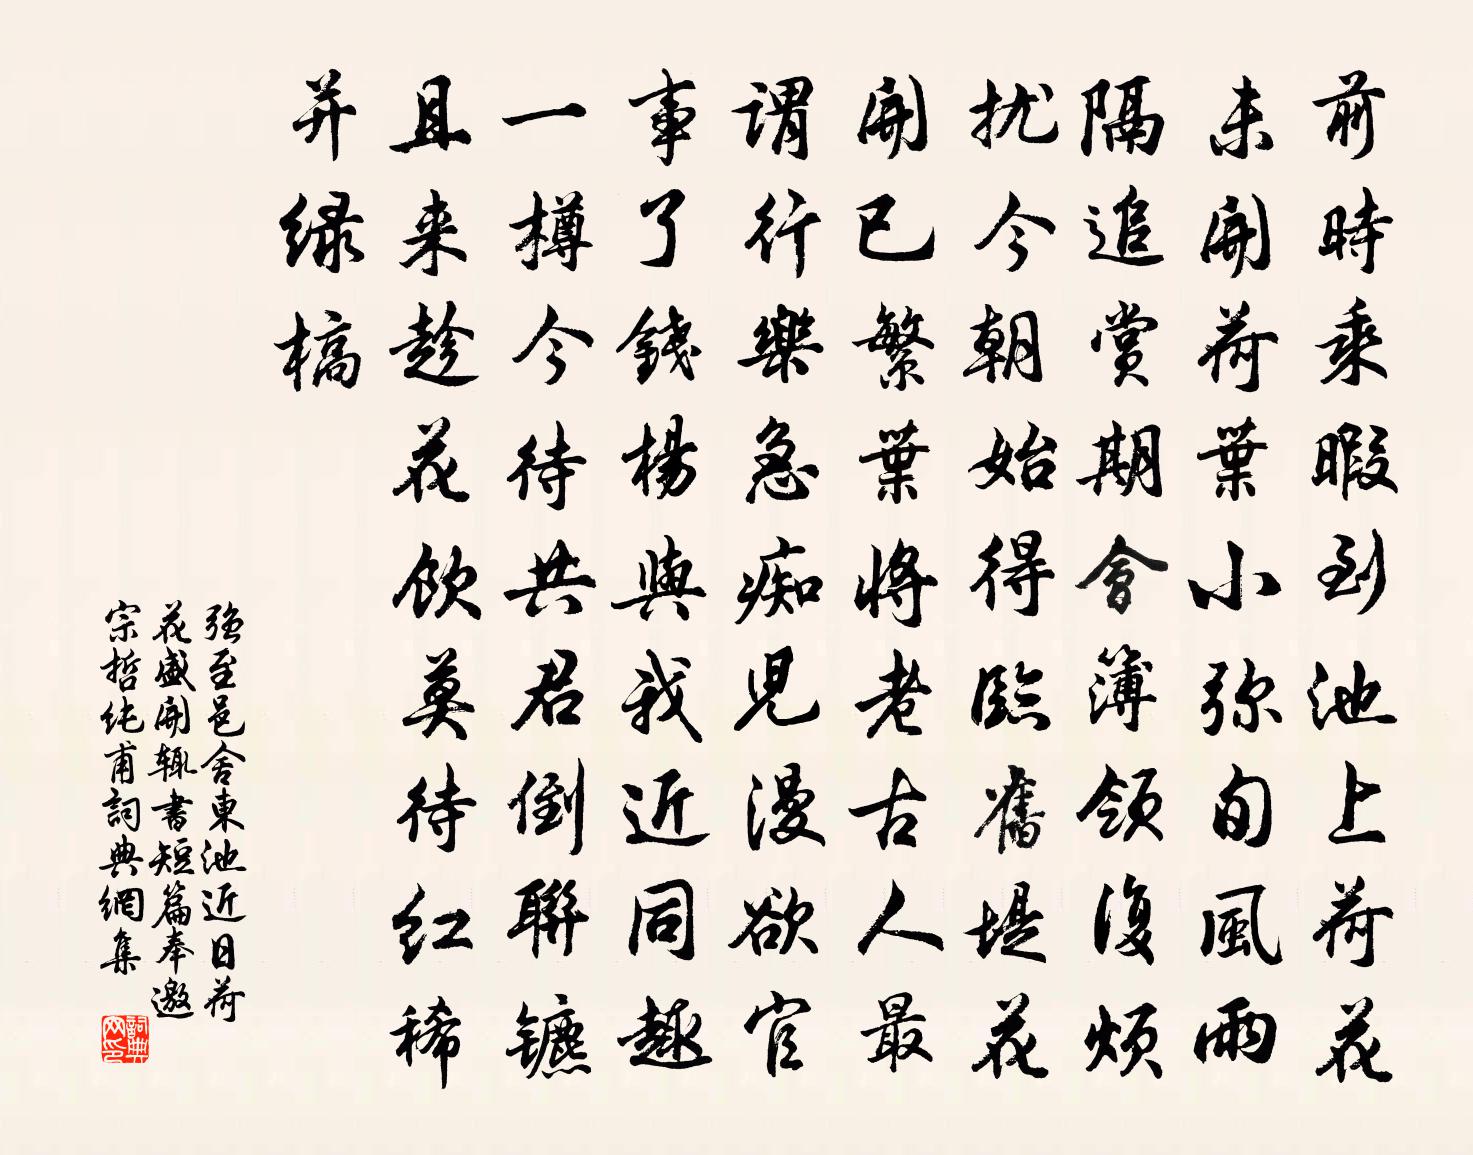 前時乘暇到池上荷花
未開荷葉小弥旬風雨
隔追賞期會簿領復煩
扰今朝始得臨舊堤花
開已繁葉將老古人最
謂行樂急痴児漫欲官
事了錢楊與我近同趣
一樽今待共君倒聯鑣
且来趁花飲莫待红稀
并绿槁
强至邑舍東池近日荷
花盛開輒書短篇奉邀
宗哲纯甫詞典網集
詞典網印